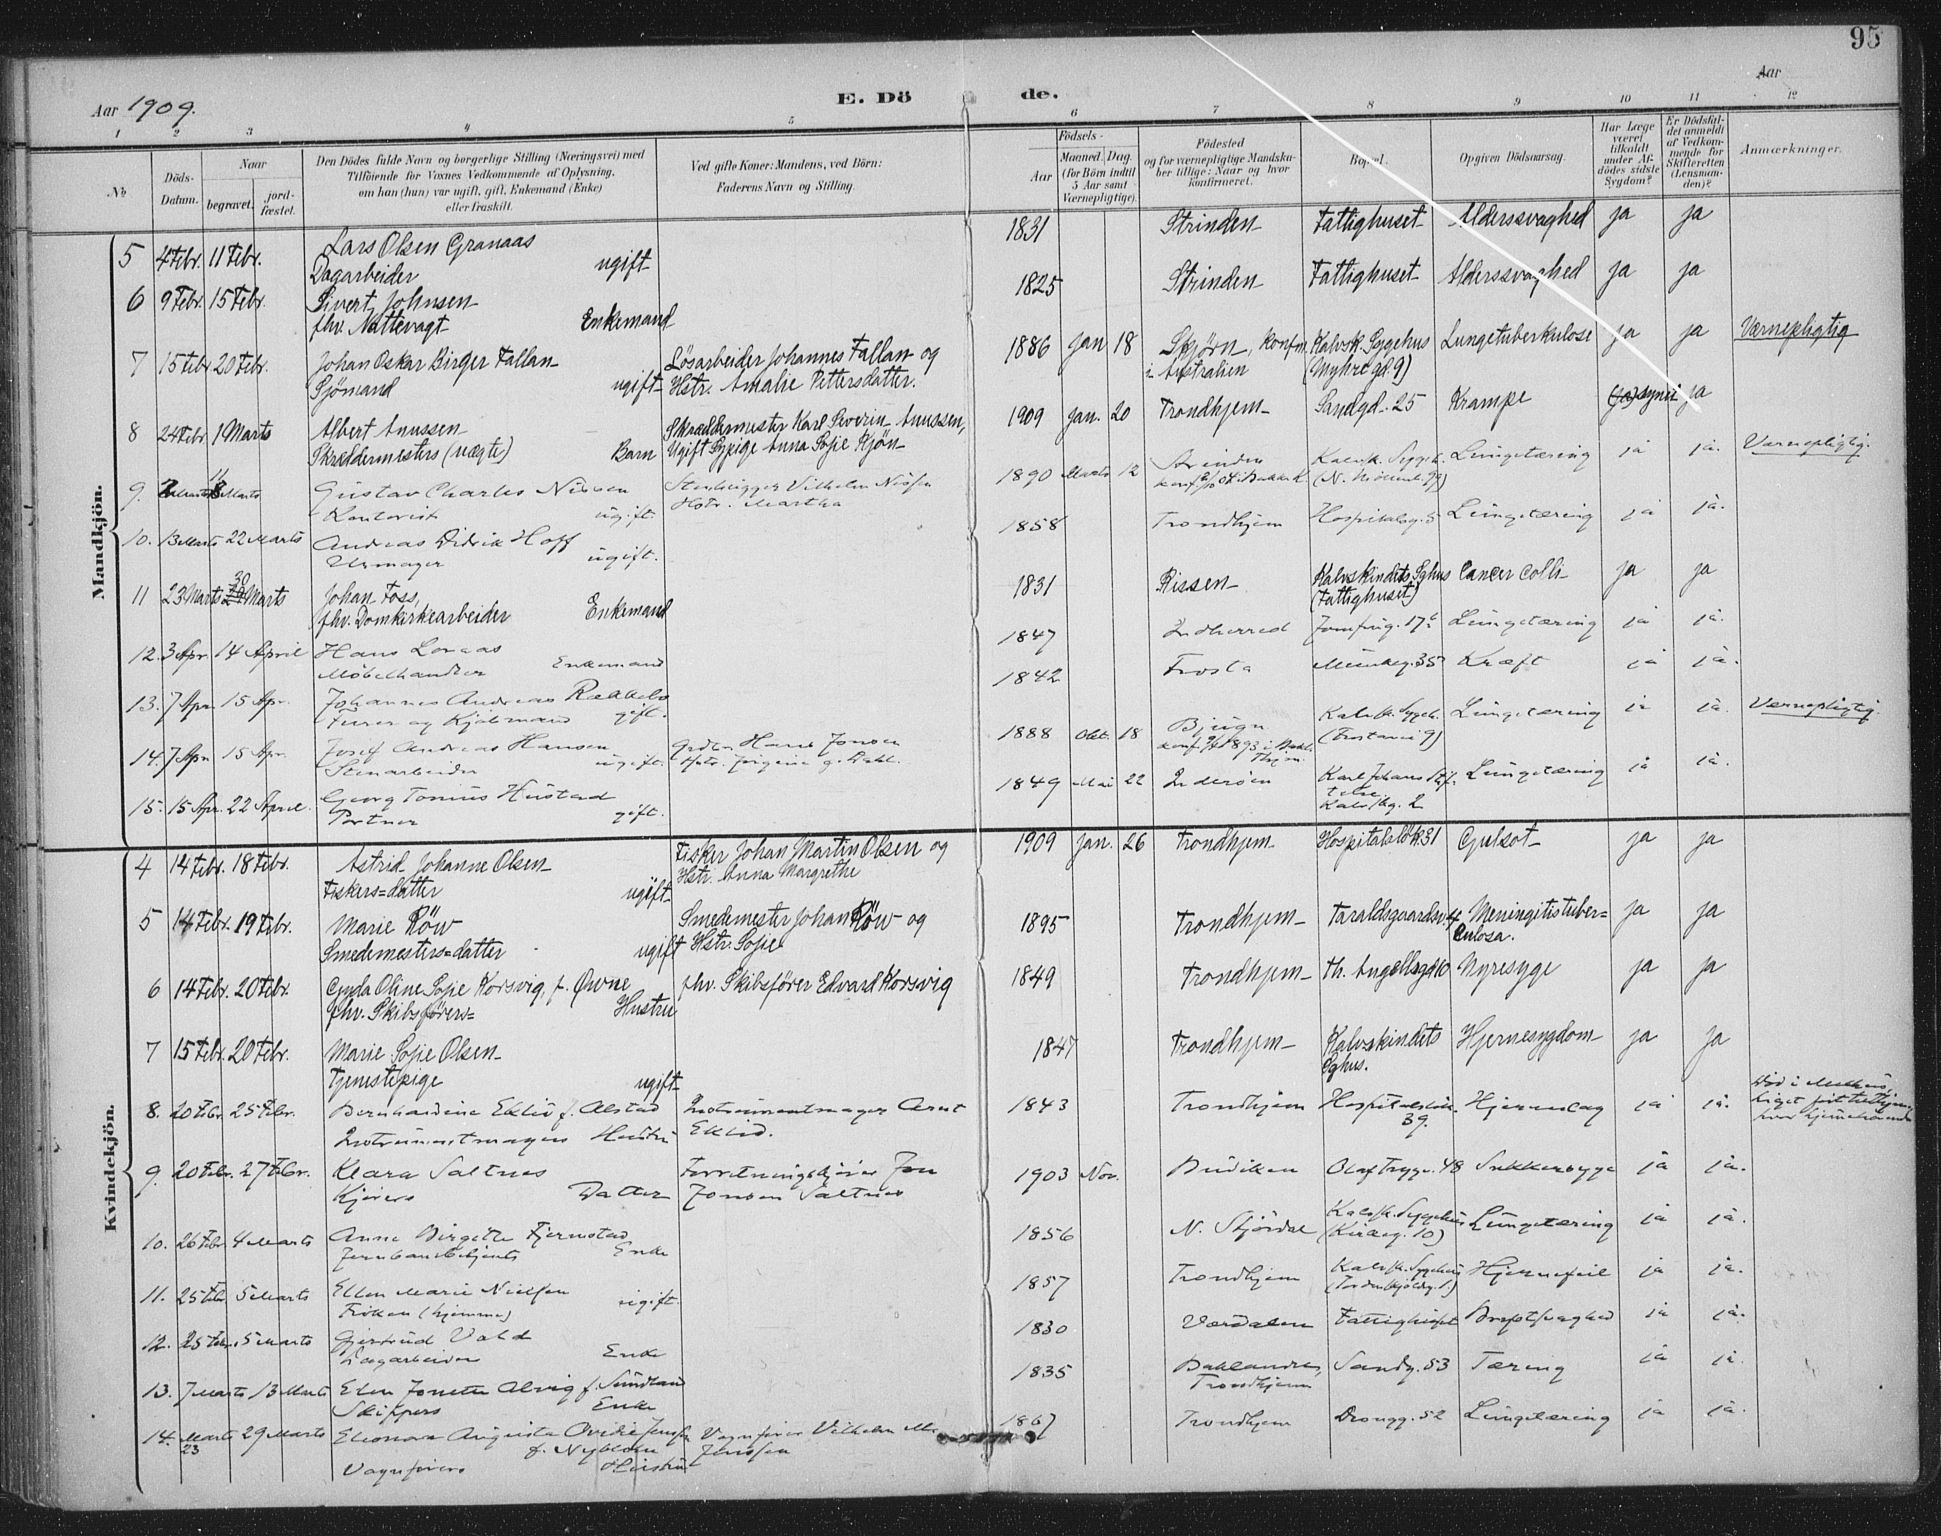 95
Aar 1909.
E. Dö de.
Aar
1 2 3 4 5 6 7 8 9 10 11 12
№
Döds-Datum.
Naar
begravet.
jord-fæstet.
Den Dödes fulde Navn og borgerlige Stilling (Næringsvei) med
Tilföiende for Voxnes Vedkommende af Oplysning,
om han (hun) var ugift, gift, Enkemand (Enke)
eller fraskilt.
Ved gifte Koner: Mandens, ved Börn:
Faderens Navn og Stilling.
Födsels-
Aar
Maaned. Dag.
(for Börn indtil
5 Aar samt
Værnepligtige).
Födested
og for værnepligtige Mandska-
ber tillige: Naar og hvor
konfirmeret.
Bopæl.
Opgiven Dödsaarsag.
Har Læge
været
tilkaldt
under Af-
dödes sidste
Sygdom?
Er Dödsfal-
det anmeldt
af Vedkom-
mende for
Skifteretten
(Lensman-
den)?
Anmærkninger.
Mandkjön.
5 4 Febr. 11 Febr. Lars Olsen Granaas 1831 Strinden Fattighuset Alderssvaghed ja ja
Dagarbeider ugift
6 9 Febr. 15 Febr. Sivert Johnsen 1825 Strinden Fattighuset Alderssvaghed ja ja
fhv. Nattevagt Enkemand
7 15 Febr. 20 Febr. Johan Oskar Birger Fallan Løsarbeider Johannes Fallan og 1886 Jan 18 Skjörn, konfirm. Kalvsk. Sygehus Lungetuberkulose ja ja Værnepligtig
Sjömand ugift Hstr. Amalie Pettersdatter. i Australien (Myhregd. 9)
8 24 Febr. 1 Marts Albert Anussen Skræddermester Karl Severin Anussen, 1909 Jan. 20 Trondhjem Sandgd. 25 Krampe (ja) synet ja
Skræddermesters (uægte) Barn Ugift Sypige Anna Sofie Kjøn
9. Marts Marts Gustav Charles Nissen Vilhelm Nissen 1890 Marts 12 Strinden Kalvsk. Sygeh. Lungetæring ja ja. Værnepligtig.
Kontorist ugift. Hstr. Martha
10. 13 Marts 22 Marts Andreas Didrik Hoff 1858 Trondhjem Hospitalsg. 5 Lungetæring ja ja.
Urmager ugift.
11 23 Marts 30 Marts Johan Foss, 1831 Rissen Kalvskindets Sghus Cancer colli ja ja
fhv. Domkirkearbeider Enkemand (Fattighuset)
12. 3 Apr. 14 April Hans Loraas 1847 Inderred Jomfrug. 17 Lungetæring ja ja.
Møbelhandler Enkemand
13. 7 Apr. 15 Apr. Johannes Andreas 1842 Frosta Munkeg. 35 Kræft ja ja.
gift.
14. 7 Apr. 15 Apr. Josef Andreas Hansen Hans Jonsen 1888 Okt. 18 Bjugn Kalvsk. Sygeh. Lungetæring ja ja. Værnepligtig.
Stenarbeider ugift. Hstr. Jørgine g. Dahl.
15. 15 Apr. 22 April. Georg Tonius Hustad 1849 Mai 22 Inderöen Karl Johans Lungetæring ja ja.
Portner gift. Kalvskg. 2
Kvindekjön.
4 14 Febr. 18 Febr. Astrid Johanne Olsen Fisker Johan Martin Olsen og 1909 Jan. 26 Trondhjem Hospitalsløk. 31 Gulsot ja ja
Fiskers=datter ugift Hstr. Anna Margrethe
5 14 Febr. 19 Febr. Marie Röw Smedemester Johan Röw og 1895 Trondhjem Taraldsgaardsv. 4 Meningitis tuber= ja ja
Smedemesters=datter ugift Hstr. Sofie culosa.
6 14 Febr. 20 Febr. Gyda Oline Sofie Korsvig, f. Øwne fhv. Skibsfører Edvard Korsvig 1849 Trondhjem Th. Angellsgd 10 Nyresyge ja ja
fhv. Skibsförers= Hustru
7 15 Febr. 20 Febr. Marie Sofie Olsen 1847 Trondhjem Kalvskindets Hjernesygdom ja ja
Tjenestepige ugift Sghus.
8. 20 Febr. 25 Febr. Bernhardine Eklid f. Alstad Instrumentmager Arnt 1843 Trondhjem Hospitalsløk. Hjerneslag ja ja. Død i Melhus,
Instrumentmagers Hustru Eklid. 39.
9. 20 Febr. 27 Febr. Klara Saltnes Forretningskjører Jon 1903 Nov. Budviken Olaf Trygv. 48 Sukkersyge ja ja.
Kjörers Datter Jonsen Saltnes
10. 26 Febr. 4 Marts Anne Birgitte Fjernstad 1856 N. Stjördal Kalvsk. Sygehus Lungetæring ja ja.
Jernbanebetjents Enke (Kirkeg. 10)
11. 25 Febr. 5 Marts Ellen Marie Nielsen 1857 Trondhjem Kalvsk. Sygehus Hjertefeil ja ja.
Frøken (hjemme) ugift. (Tordenskjoldsg. 1.)
12. 25 Febr. 5 Marts Gjertrud Vold 1830 Værdalen Fattighuset Brystsvaghed ja ja.
Dagarbeider Enke
13. 7 Marts 13 Marts Elen Jonette Alvig f. Sundland 1835 Baklandet, Sandg. 53 Tæring ja ja
Skippers Enke Trondhjem
14. Marts 29 Marts Eleonora Augusta Ovidie Jenssen Vognfører Vilhelm 1867 Trondhjem Drongg. 52 Lungetæring ja ja.
23 f. Nyblom Jenssen
Vognførers Hustru